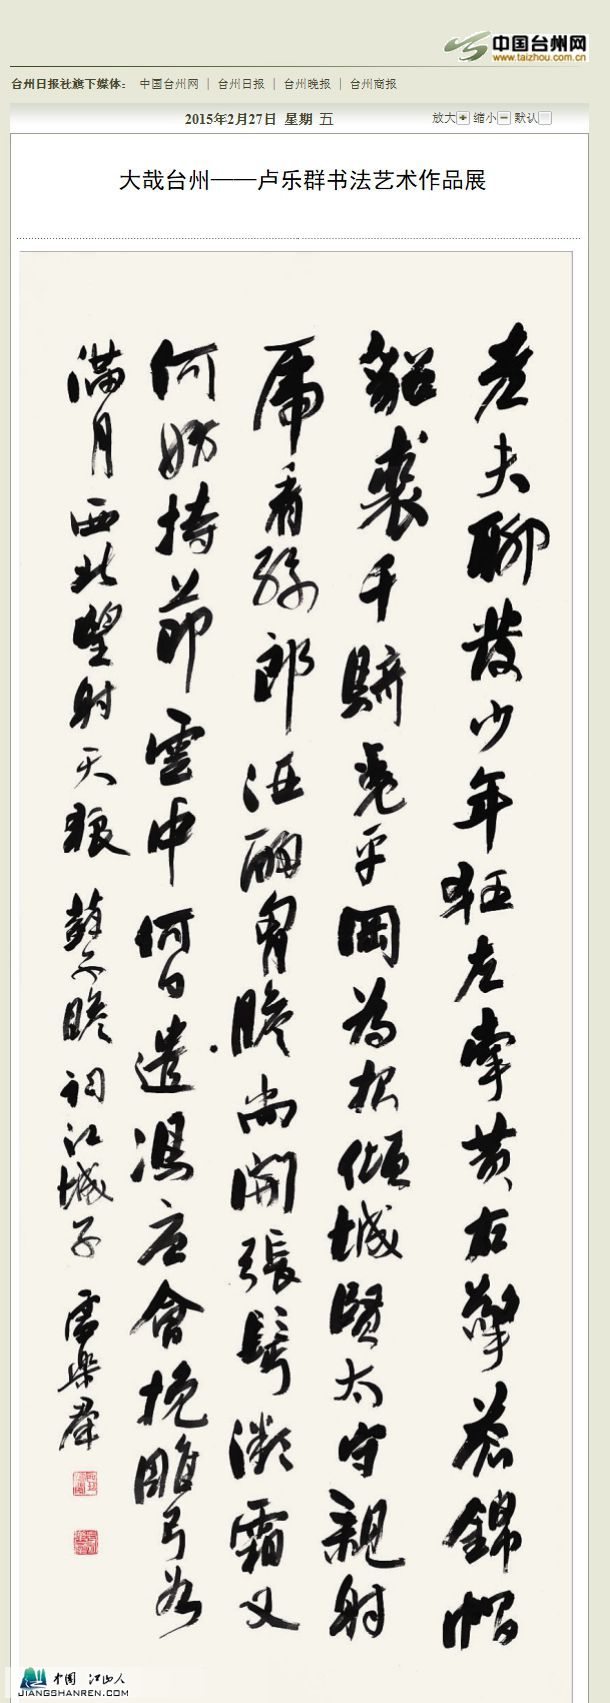 中国台州网
www.taizhou.com.cn
台州日报社旗下媒体： 中国台州网 | 台州日报 | 台州晚报 | 台州商报
2015年2月27日 星期 五 放大 缩小 默认
大哉台州——卢乐群书法艺术作品展
老夫聊發少年狂左牽黄右擎蒼錦帽
貂裘千騎卷平岡為报傾城賢太守親射
虎看孫郎酒酣胷膽尚開張鬢微霜又
何妨持節雲中何日遣馮唐會挽雕弓如
满月西北望射天狼 蘇子瞻詞江城子 盧樂群
中国 江山人
JIANGSHANREN.COM